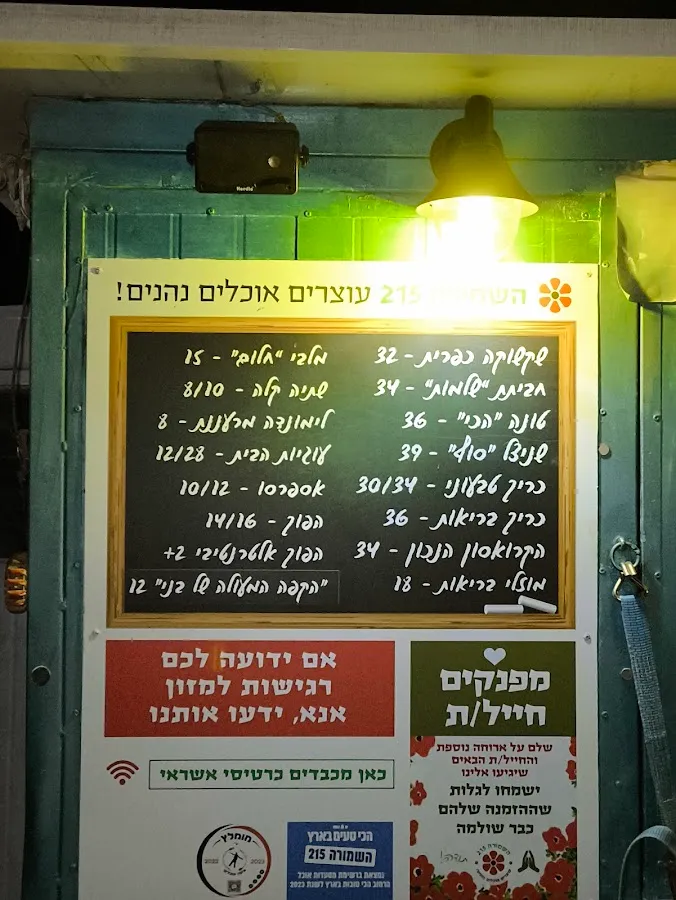 השמורה 215 עוצרים אוכלים נהנים!
שקשוקה כפרית - 32
חביתת "שלומות" - 34
טונה "הכי" - 36
שניצל "סוף" - 39
כריך טבעוני - 30/34
כריך בריאות - 36
הקרואסון הנכון - 34
מוצלי בריאות - 18
מלבי "חלום" - 15
שתיה קלה - 8/10
לימונדה מרעננת - 8
עוגיות הבית - 12/28
אספרסו - 10/12
הפוך - 14/16
הפוך אלטרנטיבי 2+
"הקפה המעולה של בני" 12
אם ידועה לכם
רגישות למזון
אנא, ידעו אותנו
כאן מכבדים כרטיסי אשראי
מפנקים
חייל/ת
שלם על ארוחה נוספת
והחייל/ת הבאים
שיגיעו אלינו
ישמחו לגלות
שההזמנה שלהם
כבר שולמה
תודה!
השמורה 215
מומלץ
2022 2023
הכי טעים בארץ
השמורה 215
נמצאת ברשימת מסעדות אוכל
הרחוב הכי טובות בארץ לשנת 2023